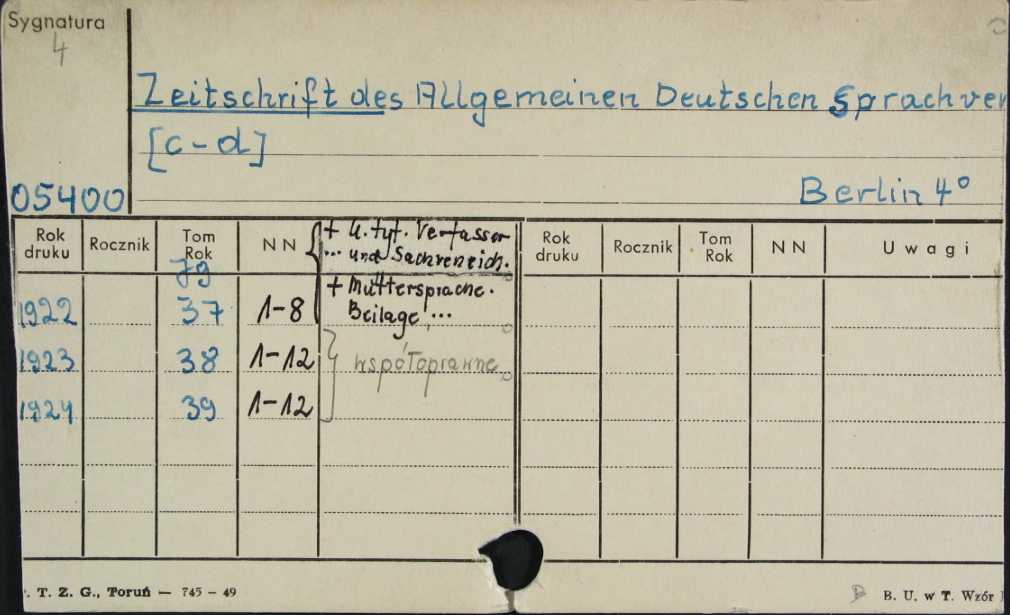 Sygnatura
4
Zeitschrift des Allgemeinen Deutschen Sprachver
[c-d]
05400
Berlin 4°
Rok druku Rocznik Tom Rok NN + k. tyt. Verfasser Rok druku Rocznik Tom Rok NN Uwagi
... und Sachverzeich.
Jg + Muttersprache.
1922 37 1-8 Beilage ...
1923 38 1-12 współoprawne
1924 39 1-12
. T. Z. G., Toruń — 745 - 49
B. U. w T. Wzór